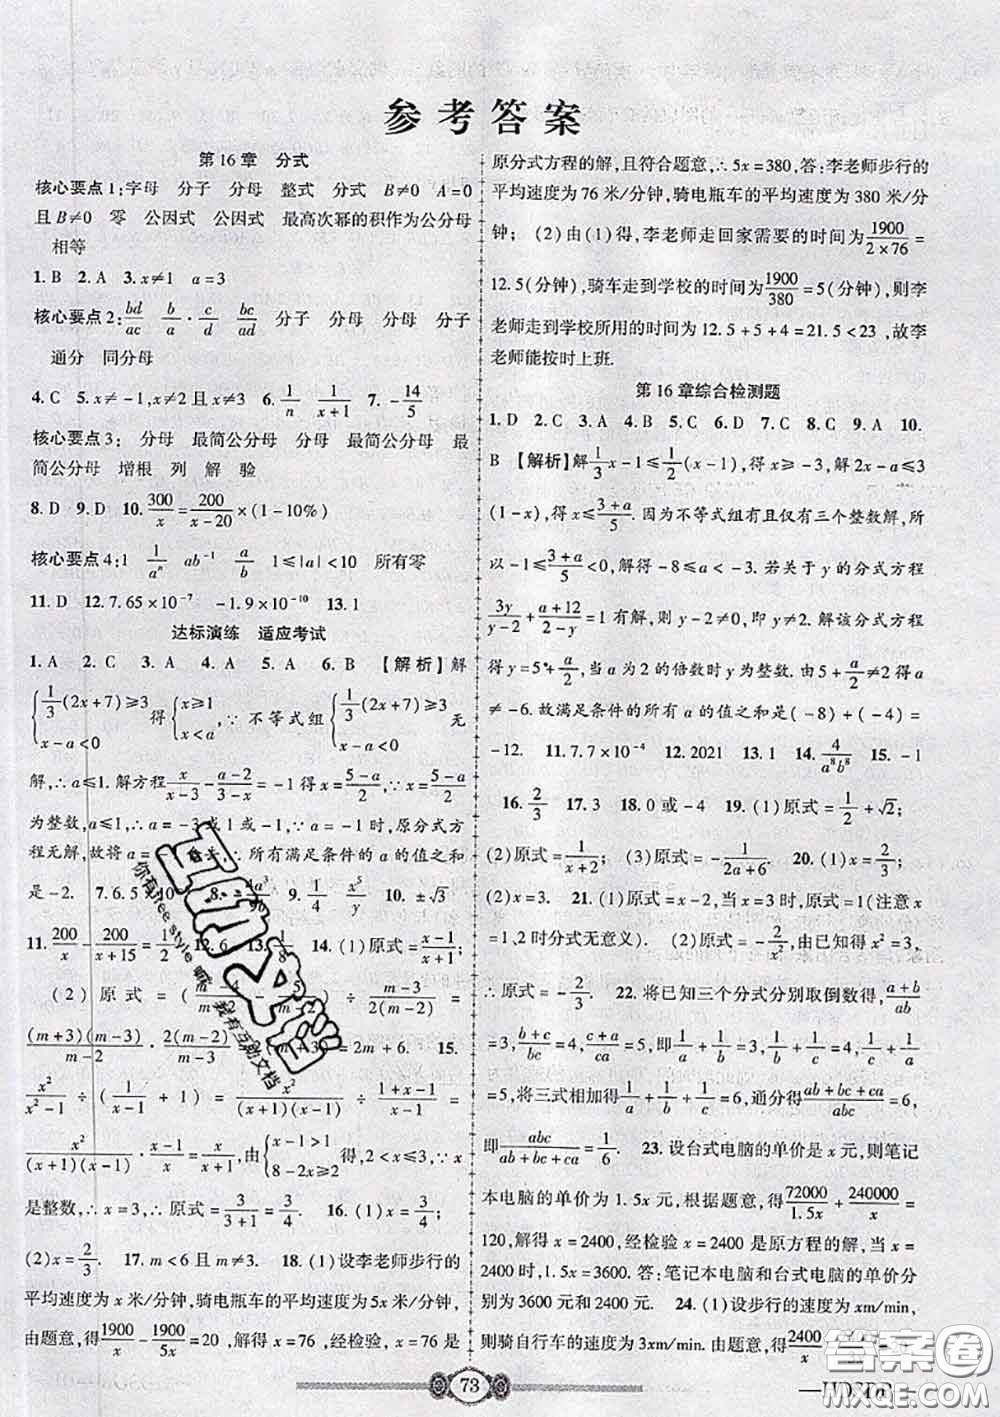 参考答案
第16章 分式
核心要点1:字母 分子 分母 整式 分式 B≠0 A=0
且B≠0 零 公因式 公因式 最高次幂的积作为公分母
相等
1.B 2.A 3.x≠1 a=3
核心要点2:bd/ac b/a·c/d bc/ad 分子 分母 分母 分子
通分 同分母
4.C 5.x≠-1,x≠2且x≠3 6.1/n 1/(x+1) 7.-14/5
核心要点3: 分母 最简公分母 分母 最简公分母 最
简公分母 增根 列 解 验
8.D 9.D 10.300/x=200/(x-20)×(1-10%)
核心要点4:1 1/aⁿ ab⁻¹ a/b 1≤|a|<10 所有零
11.D 12.7.65×10⁻⁷ -1.9×10⁻¹⁰ 13.1
达标演练 适应考试
1.A 2.C 3.A 4.A 5.A 6.B 【解析】解
{1/3(2x+7)≥3 x-a<0 得{x≥1 x<a,∵不等式组{1/3(2x+7)≥3 x-a<0 无
解,∴a≤1.解方程x/(x-3)-(a-2)/(3-x)=-1得x=(5-a)/2,∵x=(5-a)/2
为整数,a≤1,∴a=-3或1或-1,∵a=-1时,原分式方
程无解,故将a= 所有满足条件的a的值之和
是-2. 7.6.5×10 9.1/4 x⁵/y 10.±√3
11.200/x-200/(x+15)=1/2 12.6 13.1/8 14.(1)原式=(x-1)/(x+1);
(2)原式=( ÷(m-3)/2(m-2)=
(m+3)(m-3)/(m-2)·2(m-2) =2m+6. 15.
x²/(x²-1)÷(1/(x-1)+1)=x²/(x+1)(x-1)÷(1+x-1)/(x-1)=
x²/(x+1)(x-1)·(x-1)/x=x/(x+1),由{x-1>1 8-2x≥2得,2<x≤3,∵x
是整数,∴x=3,∴原式=3/(3+1)=3/4. 16.(1)x=4;
(2)x=2/3. 17.m<6且m≠3. 18.(1)设李老师步行的
平均速度为x米/分钟,骑电瓶车的平均速度为5x米/分钟,
由题意,得1900/x-1900/5x=20,解得x=76,经检验,x=76是
原分式方程的解,且符合题意,∴5x=380,答:李老师步行的
平均速度为76米/分钟,骑电瓶车的平均速度为380米/分
钟;(2)由(1)得,李老师走回家需要的时间为1900/(2×76)=
12.5(分钟),骑车走到学校的时间为1900/380=5(分钟),则李
老师走到学校所用的时间为12.5+5+4=21.5<23,故李
老师能按时上班.
第16章综合检测题
1.D 2.C 3.B 4.C 5.B 6.D 7.C 8.C 9.A 10.
B 【解析】解1/3x-1≤1/2(x-1),得x≥-3,解2x-a≤3
(1-x),得x≤(3+a)/5.因为不等式组有且仅有三个整数解,所
以-1≤(3+a)/5<0,解得-8≤a<-3.若关于y的分式方程
3y/(y-2)+(a+12)/(2-y)=1有解,则y-2≠0,即y≠2.解该分式方程
得y=5+a/2,当a为2的倍数时y为整数.由5+a/2≠2得a
≠-6.故满足条件的所有a的值之和是(-8)+(-4)=
-12. 11.7.7×10⁻⁴ 12.2021 13.1 14.4/a⁸b⁸ 15.-1
16.2/3 17.3 18.0或4 19.(1)原式=1/2+√2;
(2)原式=1/(x+2); (3)原式=-1/(2a+6). 20.(1)x=2/3;
(2)x=3. 21.(1)原式=x-2,当x=3时,原式=1(注意
x=1,2时分式无意义).(2)原式=-2/x²,由已知得x²=3,
∴原式=-2/3. 22.将已知三个分式分别取倒数得,(a+b)/ab
=3,(b+c)/bc=4,(c+a)/ca=5,即1/a+1/b=3,1/b+1/c=4,1/c+1/a
=5,将三式相加得1/a+1/b+1/c=6,通分得(ab+bc+ca)/abc=6,
即abc/(ab+bc+ca)=1/6. 23.设台式电脑的单价是x元,则笔记
本电脑的单价为1.5x元,根据题意,得72000/1.5x+240000/x=
120,解得x=2400,经检验x=2400是原方程的解,当x=
2400时,1.5x=3600.答:笔记本电脑和台式电脑的单价分
别为3600元和2400元. 24.(1)设步行的速度为xm/min,
则骑自行车的速度为3xm/min.由题意,得2400/x-
73
—HDSDB
答案圈